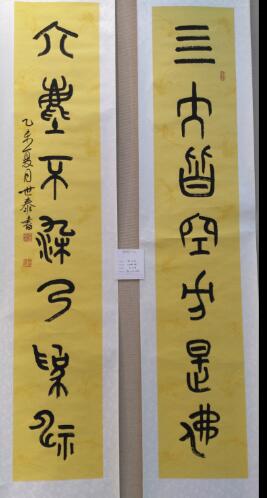 亖大皆空方是佛
六塵不染乃
乙未夏月世泰書